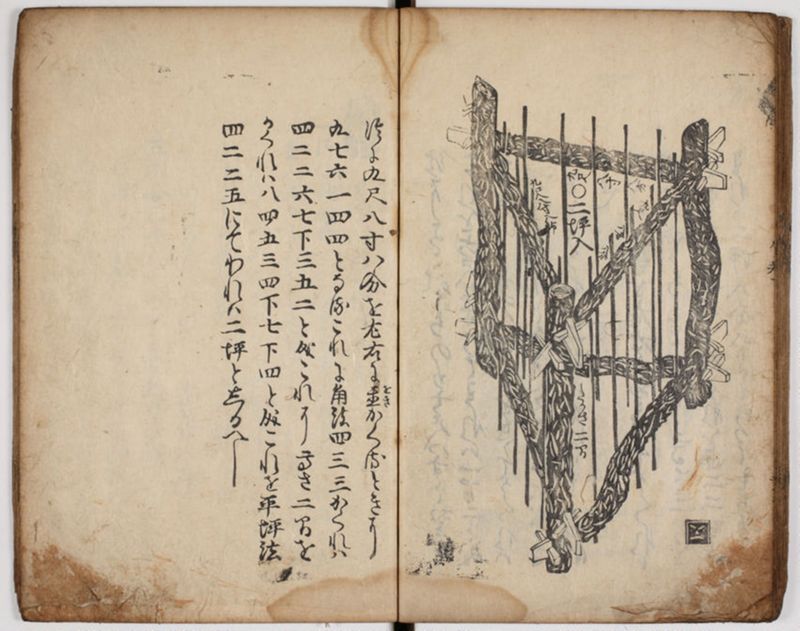 〇二坪入
たかさ二間
法に九尺八寸八分を左右に置かくるときハ
をき
九七六一四四となるこれに角法四三三かくれハ
四二二六七下三五二と成これに高さ二間を
かくれハ八四五三四下七下四と成これを平坪法
四二二五にてわれハ二坪としるへし